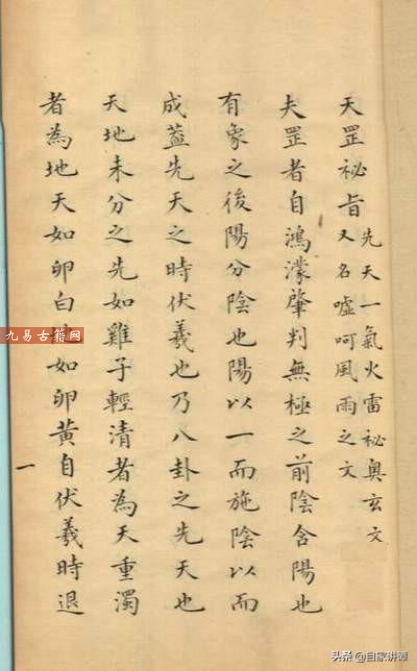 天罡祕旨 先天一氣火雷祕奧玄文
又名噓呵風雨之文
夫罡者自鴻濛肇判無極之前陰含陽也
有象之後陽分陰也陽以一而施陰以而
成蓋先天之時伏羲也乃八卦之先天也
天地未分之先如雞子輕清者為天重濁
者為地天如卵白 如卵黃自伏羲時退
一
九易古籍网
头条 @自家讲谭